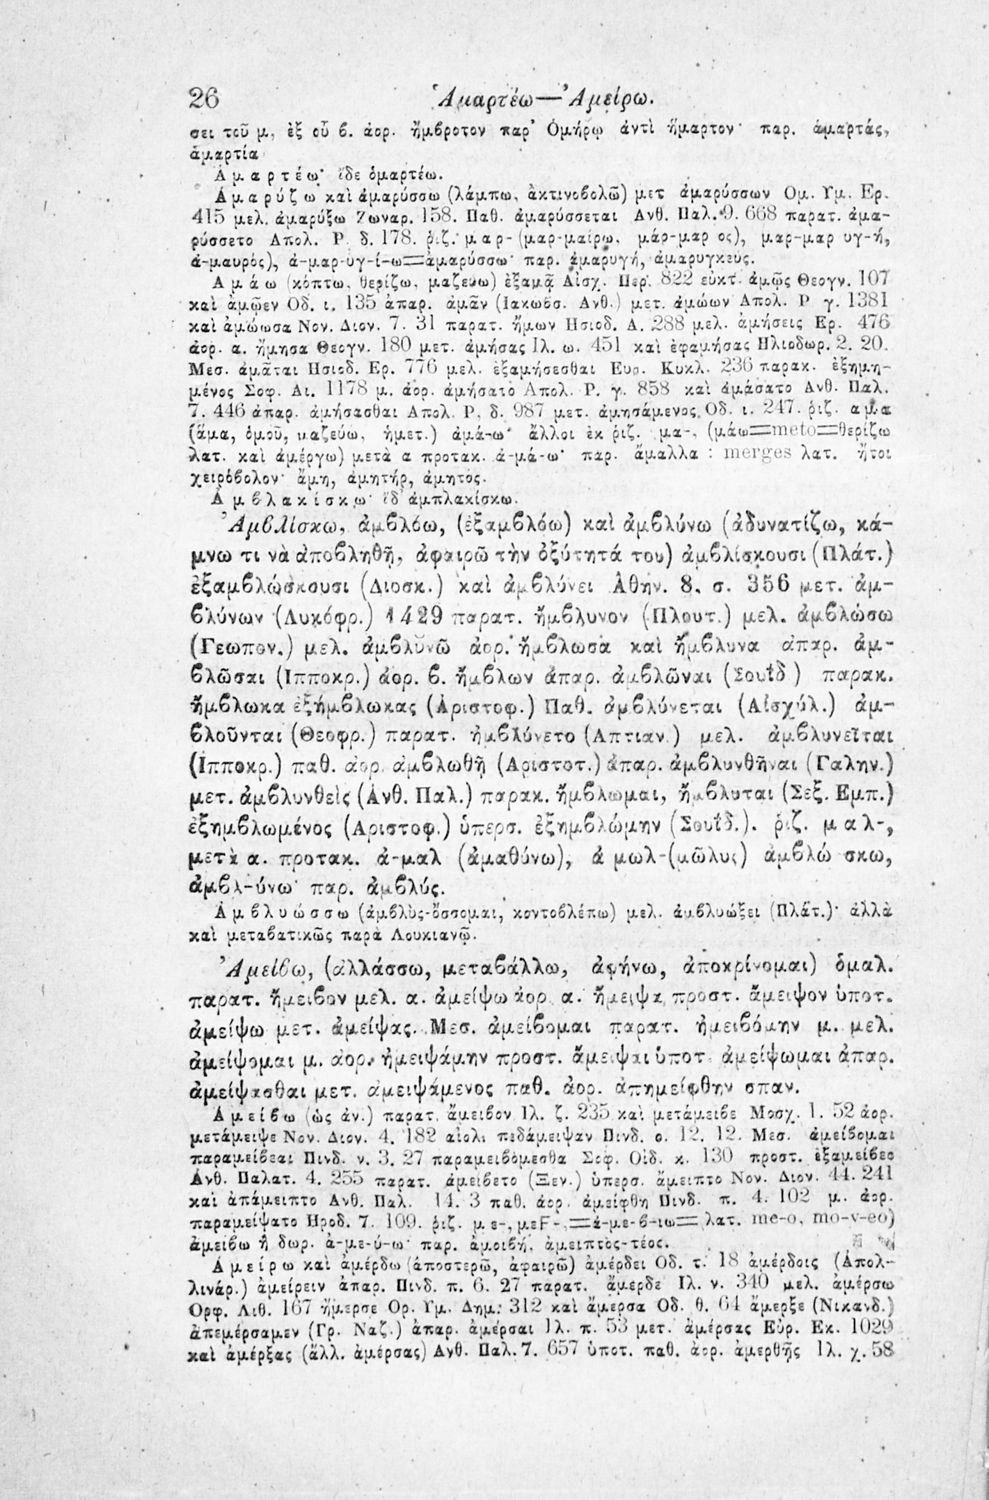 26 Ἁμαρτέω—Ἀμείρω.
σει τοῦ μ, ἐξ οὗ β. ἀορ. ἤμβροτον παρ' Ὁμήρῳ ἀντὶ ἥμαρτον· παρ. ἁμαρτάς,
ἁμαρτία
Ἁμαρτέω· ἴδε ὁμαρτέω.
Ἀμαρύζω καὶ ἀμαρύσσω (λάμπω, ἀκτινοβολῶ) μετ ἀμαρύσσων Ομ. Υμ. Ερ.
415 μελ. ἀμαρύξω Ζωναρ. 158. Παθ. ἀμαρύσσεται Ανθ. Παλ. 9. 668 παρατ. ἀμα-
ρύσσετο Απολ. Ρ. δ. 178. ῥιζ. μαρ- (μαρ-μαίρω, μάρ-μαρ ος), μαρ-μαρ υγ-ή,
ἀ-μαυρός), ἀ-μαρ-ύγ-ί-ω=ἀμαρύσσω· παρ. ἀμαρυγή, ἀμαρυγκεύς.
Ἀμάω (κόπτω, θερίζω, μαζεύω) ἐξαμᾷ Αἰσχ. Περ. 822 εὐκτ. ἀμῷς Θεογν. 107
καὶ ἀμῷεν Οδ. ι. 135 ἀπαρ. ἀμᾶν (Ιακωβσ. Ανθ.) μετ. ἀμώων Απολ. Ρ γ. 1381
καὶ ἀμώωσα Νον. Διον. 7. 31 παρατ. ἤμων Ησιοδ. Α. 288 μελ. ἀμήσεις Ερ. 476
ἀορ. α. ἤμησα Θεογν. 180 μετ. ἀμήσας Ιλ. ω. 451 καὶ ἐφαμήσας Ηλιοδωρ. 2. 20.
Μεσ. ἀμᾶται Ησιοδ. Ερ. 776 μελ. ἐξαμήσεσθαι Ευρ. Κυκλ. 236 παρακ. ἐξημη-
μένος Σοφ. Αι. 1178 μ. ἀορ. ἀμήσατο Απολ. Ρ. γ. 858 καὶ ἀμάσατο Ανθ. Παλ.
7. 446 ἀπαρ. ἀμήσασθαι Απολ. Ρ. δ. 987 μετ. ἀμησάμενος Οδ. ι. 247. ῥιζ. αμα
(ἅμα, ὁμοῦ, μαζεύω, ἡμετ.) ἀμά-ω· ἄλλοι ἐκ ῥιζ. μα-, (μάω=meto=θερίζω
λατ. καὶ ἀμέργω) μετὰ α προτακ. ἀ-μά-ω· παρ. ἄμαλλα : merges λατ. ἤτοι
χειρόβολον· ἄμη, ἀμητήρ, ἀμητός.
Ἀμβλακίσκω· ἴδ' ἀμπλακίσκω.
Ἀμβλίσκω, ἀμβλόω, (ἐξαμβλόω) καὶ ἀμβλύνω (ἀδυνατίζω, κά-
μνω τι νὰ ἀποβληθῇ, ἀφαιρῶ τὴν ὀξύτητά του) ἀμβλίσκουσι (Πλάτ.)
ἐξαμβλώσκουσι (Διοσκ.) καὶ ἀμβλύνει Ἀθήν. 8. σ. 356 μετ. ἀμ-
βλύνων (Λυκόφρ.) 1429 παρατ. ἤμβλυνον (Πλουτ.) μελ. ἀμβλώσω
(Γεωπον.) μελ. ἀμβλυνῶ ἀορ. ἤμβλωσα καὶ ἤμβλυνα ἀπαρ. ἀμ-
βλῶσαι (Ιπποκρ.) ἀορ. β. ἤμβλων ἀπαρ. ἀμβλῶναι (Σουΐδ.) παρακ.
ἤμβλωκα ἐξήμβλωκας (Ἀριστοφ.) Παθ. ἀμβλύνεται (Αἰσχύλ.) ἀμ-
βλοῦνται (Θεοφρ.) παρατ. ἠμβλύνετο (Αππιαν.) μελ. ἀμβλυνεῖται
(Ἱπποκρ.) παθ. ἀορ. ἀμβλωθῇ (Αριστοτ.) ἀπαρ. ἀμβλυνθῆναι (Γαλην.)
μετ. ἀμβλυνθεὶς (Ἀνθ. Παλ.) παρακ. ἤμβλωμαι, ἤμβλυται (Σεξ. Εμπ.)
ἐξημβλωμένος (Αριστοφ.) ὑπερσ. ἐξημβλώμην (Σουΐδ.). ῥιζ. μαλ-,
μετὰ α. προτακ. ἀ-μαλ (ἀμαθύνω), ἀ μωλ-(μῶλυς) ἀμβλώ σκω,
ἀμβλ-ύνω· παρ. ἀμβλύς.
Ἀμβλυώσσω (ἀμβλὺς-ὄσσομαι, κοντοβλέπω) μελ. ἀμβλυώξει (Πλάτ.)· ἀλλὰ
καὶ μεταβατικῶς παρὰ Λουκιανῷ.
Ἀμείβω, (ἀλλάσσω, μεταβάλλω, ἀφήνω, ἀποκρίνομαι) ὁμαλ.
παρατ. ἤμειβον μελ. α. ἀμείψω ἀορ. α. ἤμειψα προστ. ἄμειψον ὑποτ.
ἀμείψω μετ. ἀμείψας. Μεσ. ἀμείβομαι παρατ. ἠμειβόμην μ. μελ.
ἀμείψομαι μ. ἀορ. ἠμειψάμην προστ. ἄμειψαι ὑποτ. ἀμείψωμαι ἀπαρ.
ἀμείψασθαι μετ. ἀμειψάμενος παθ. ἀορ. ἀπημείφθην σπαν.
Ἀμείβω (ὡς ἀν.) παρατ. ἄμειβον Ιλ. ζ. 235 καὶ μετάμειβε Μοσχ. 1. 52 ἀορ.
μετάμειψε Νον. Διον. 4. 182 αἰολ. πεδάμειψαν Πινδ. ο. 12. 12. Μεσ. ἀμείβομαι
παραμείβεαι Πινδ. ν. 3. 27 παραμειβόμεσθα Σοφ. Οἰδ. κ. 130 προστ. ἐξαμείβεο
Ἀνθ. Παλατ. 4. 255 παρατ. ἀμείβετο (Ξεν.) ὑπερσ. ἄμειπτο Νον. Διον. 44. 241
καὶ ἀπάμειπτο Ανθ. Παλ. 14. 3 παθ. ἀορ. ἀμείφθη Πινδ. π. 4. 102 μ. ἀορ.
παραμείψατο Ηροδ. 7. 109. ῥιζ. με-, μεF-, =ἀ-με-β-ιω= λατ. me-o, mo-v-eo)
ἀμείβω ἢ δωρ. ἀ-με-ύ-ω· παρ. ἀμοιβή, ἀμειπτὸς-τέος.
Ἀμείρω καὶ ἀμέρδω (ἀποστερῶ, ἀφαιρῶ) ἀμέρδει Οδ. τ. 18 ἀμέρδοις (Ἀπολ-
λινάρ.) ἀμείρειν ἀπαρ. Πινδ. π. 6. 27 παρατ. ἄμερδε Ιλ. ν. 340 μελ. ἀμέρσω
Ορφ. Λιθ. 167 ἤμερσε Ορ. Υμ. Δημ. 312 καὶ ἄμερσα Οδ. θ. 64 ἄμερξε (Νικανδ.)
ἀπεμέρσαμεν (Γρ. Ναζ.) ἀπαρ. ἀμέρσαι Ιλ. π. 53 μετ. ἀμέρσας Εὐρ. Εκ. 1029
καὶ ἀμέρξας (ἄλλ. ἀμέρσας) Ανθ. Παλ. 7. 657 ὑποτ. παθ. ἀορ. ἀμερθῇς Ιλ. χ. 58